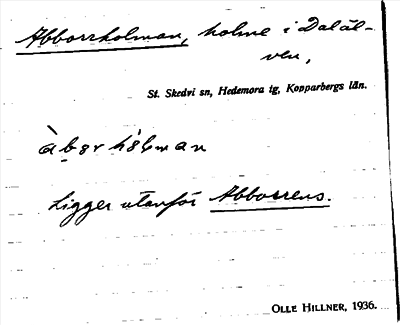 Abborrholman, holme i Daläl-
ven,
St. Skedvi sn, Hedemora tg, Kopparbergs län.
Ligger utanför Abborrens.
OLLE HILLNER, 1936.